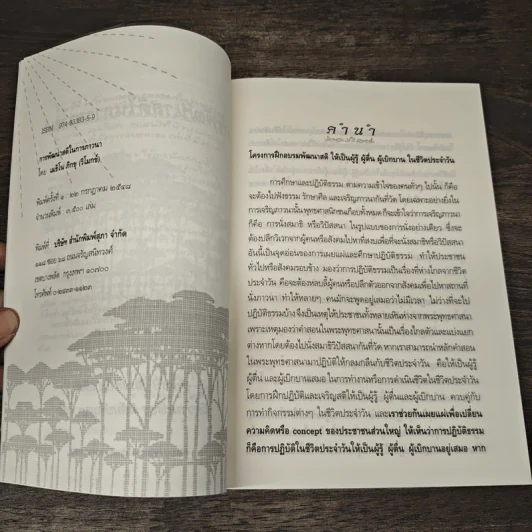 ISBN 974-93383-5-9
การพัฒนาสติในการภาวนา
โดย เมธิโน ภิกขุ (วีโมกข์)
พิมพ์ครั้งที่ ๑ : ๒๒ กรกฎาคม ๒๕๔๘
จำนวนพิมพ์ : ๓,๕๐๐ เล่ม
พิมพ์ที่ : บริษัท สำนักพิมพ์สุภา จำกัด
ถนนจรัญสนิทวงศ์
เขตบางพลัด กรุงเทพฯ ๑๐๗๐๐
คำนำ
โครงการฝึกอบรมพัฒนาสติ ให้เป็นผู้รู้ ผู้ตื่น ผู้เบิกบาน ในชีวิตประจำวัน
การศึกษาและปฏิบัติธรรม ตามความเข้าใจของคนทั่วๆ ไปนั้น ก็คือ
จะต้องไปฟังธรรม รักษาศีล และเจริญภาวนากันที่วัด โดยเฉพาะอย่างยิ่งใน
การเจริญภาวนานั้น พุทธศาสนิกชนเกือบทั้งหมด ก็จะเข้าใจว่าการเจริญภาวนา
ก็คือ การนั่งสมาธิ หรือวิปัสสนา ในรูปแบบของการนั่งอย่างเดียว ซึ่งจะ
ต้องปลีกวิเวกจากผู้คนหรือสังคมไปหาที่สงบเพื่อที่จะนั่งสมาธิหรือวิปัสสนา
อันนี้เป็นจุดอ่อนของการเผยแผ่และศึกษาปฏิบัติธรรม ทำให้ประชาชน
ทั่วไปหรือสังคมรอบข้าง มองว่าการปฏิบัติธรรมเป็นเรื่องที่ห่างไกลจากชีวิต
ประจำวัน คือจะต้องหลบลี้ผู้คนหรือปลีกตัวออกจากสังคมเพื่อไปหาสถานที่
นั่งภาวนา ทำให้หลายๆ คนมักจะพูดอยู่เสมอว่าไม่มีเวลา ไม่ว่างที่จะไป
ปฏิบัติธรรมบ้าง จึงเป็นเหตุให้ประชาชนทั้งหลายเหินห่างจากพระพุทธศาสนา
เพราะเหตุมองว่าคำสอนในพระพุทธศาสนานั้นเป็นเรื่องไกลตัวและแบ่งแยก
ต่างหากโดยต้องไปนั่งสมาธิวิปัสสนากันที่วัด หากเราสามารถนำหลักคำสอน
ในพระพุทธศาสนามาปฏิบัติให้กลมกลืนกับชีวิตประจำวัน คือให้เป็นผู้รู้
ผู้ตื่น และผู้เบิกบานเสมอ ในการทำงานหรือการดำเนินชีวิตในชีวิตประจำวัน
โดยการฝึกปฏิบัติและเจริญสติให้เป็นผู้รู้ ผู้ตื่นและผู้เบิกบาน ควบคู่กับ
การทำกิจกรรมต่างๆ ในชีวิตประจำวัน และเราช่วยกันเผยแผ่เพื่อเปลี่ยน
ความคิดหรือ concept ของประชาชนส่วนใหญ่ ให้เห็นว่าการปฏิบัติธรรม
ก็คือการปฏิบัติในชีวิตประจำวันให้เป็นผู้รู้ ผู้ตื่น ผู้เบิกบานอยู่เสมอ หาก